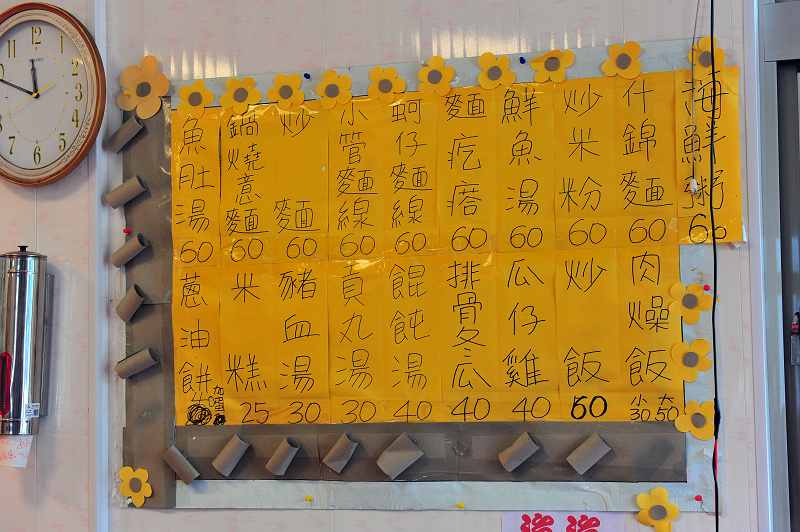 海鮮粥 60
什錦麵 60
炒米粉 60
鮮魚湯 60
麵疙瘩 60
蚵仔麵線 60
小管麵線 60
炒麵 60
鍋燒意麵 60
魚肚湯 60
肉燥飯 小30 大50
炒飯 60
瓜仔雞 40
排骨冬瓜 40
餛飩湯 40
貢丸湯 30
豬血湯 30
米糕 25
蔥油餅 加蛋